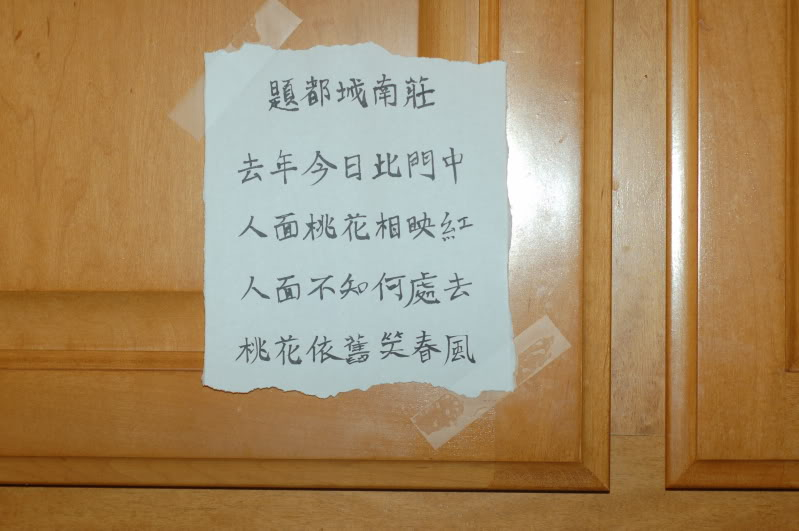 題都城南莊
去年今日北門中
人面桃花相映紅
人面不知何處去
桃花依舊笑春風